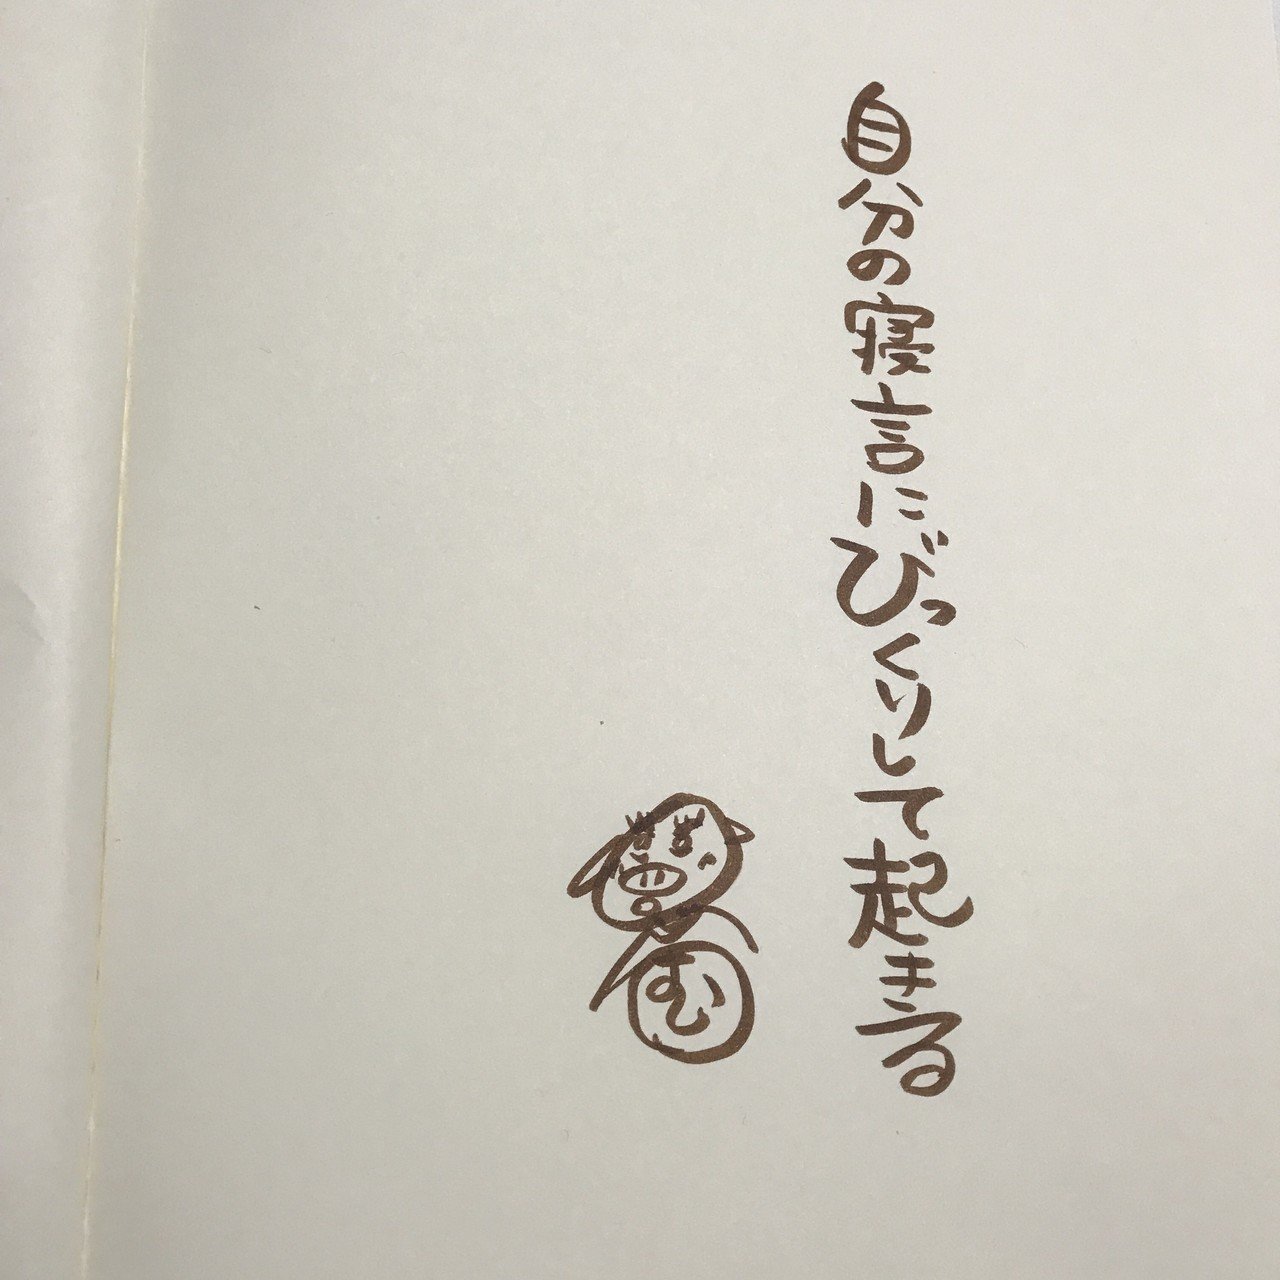 自分の寝言にびっくりして起きる
む